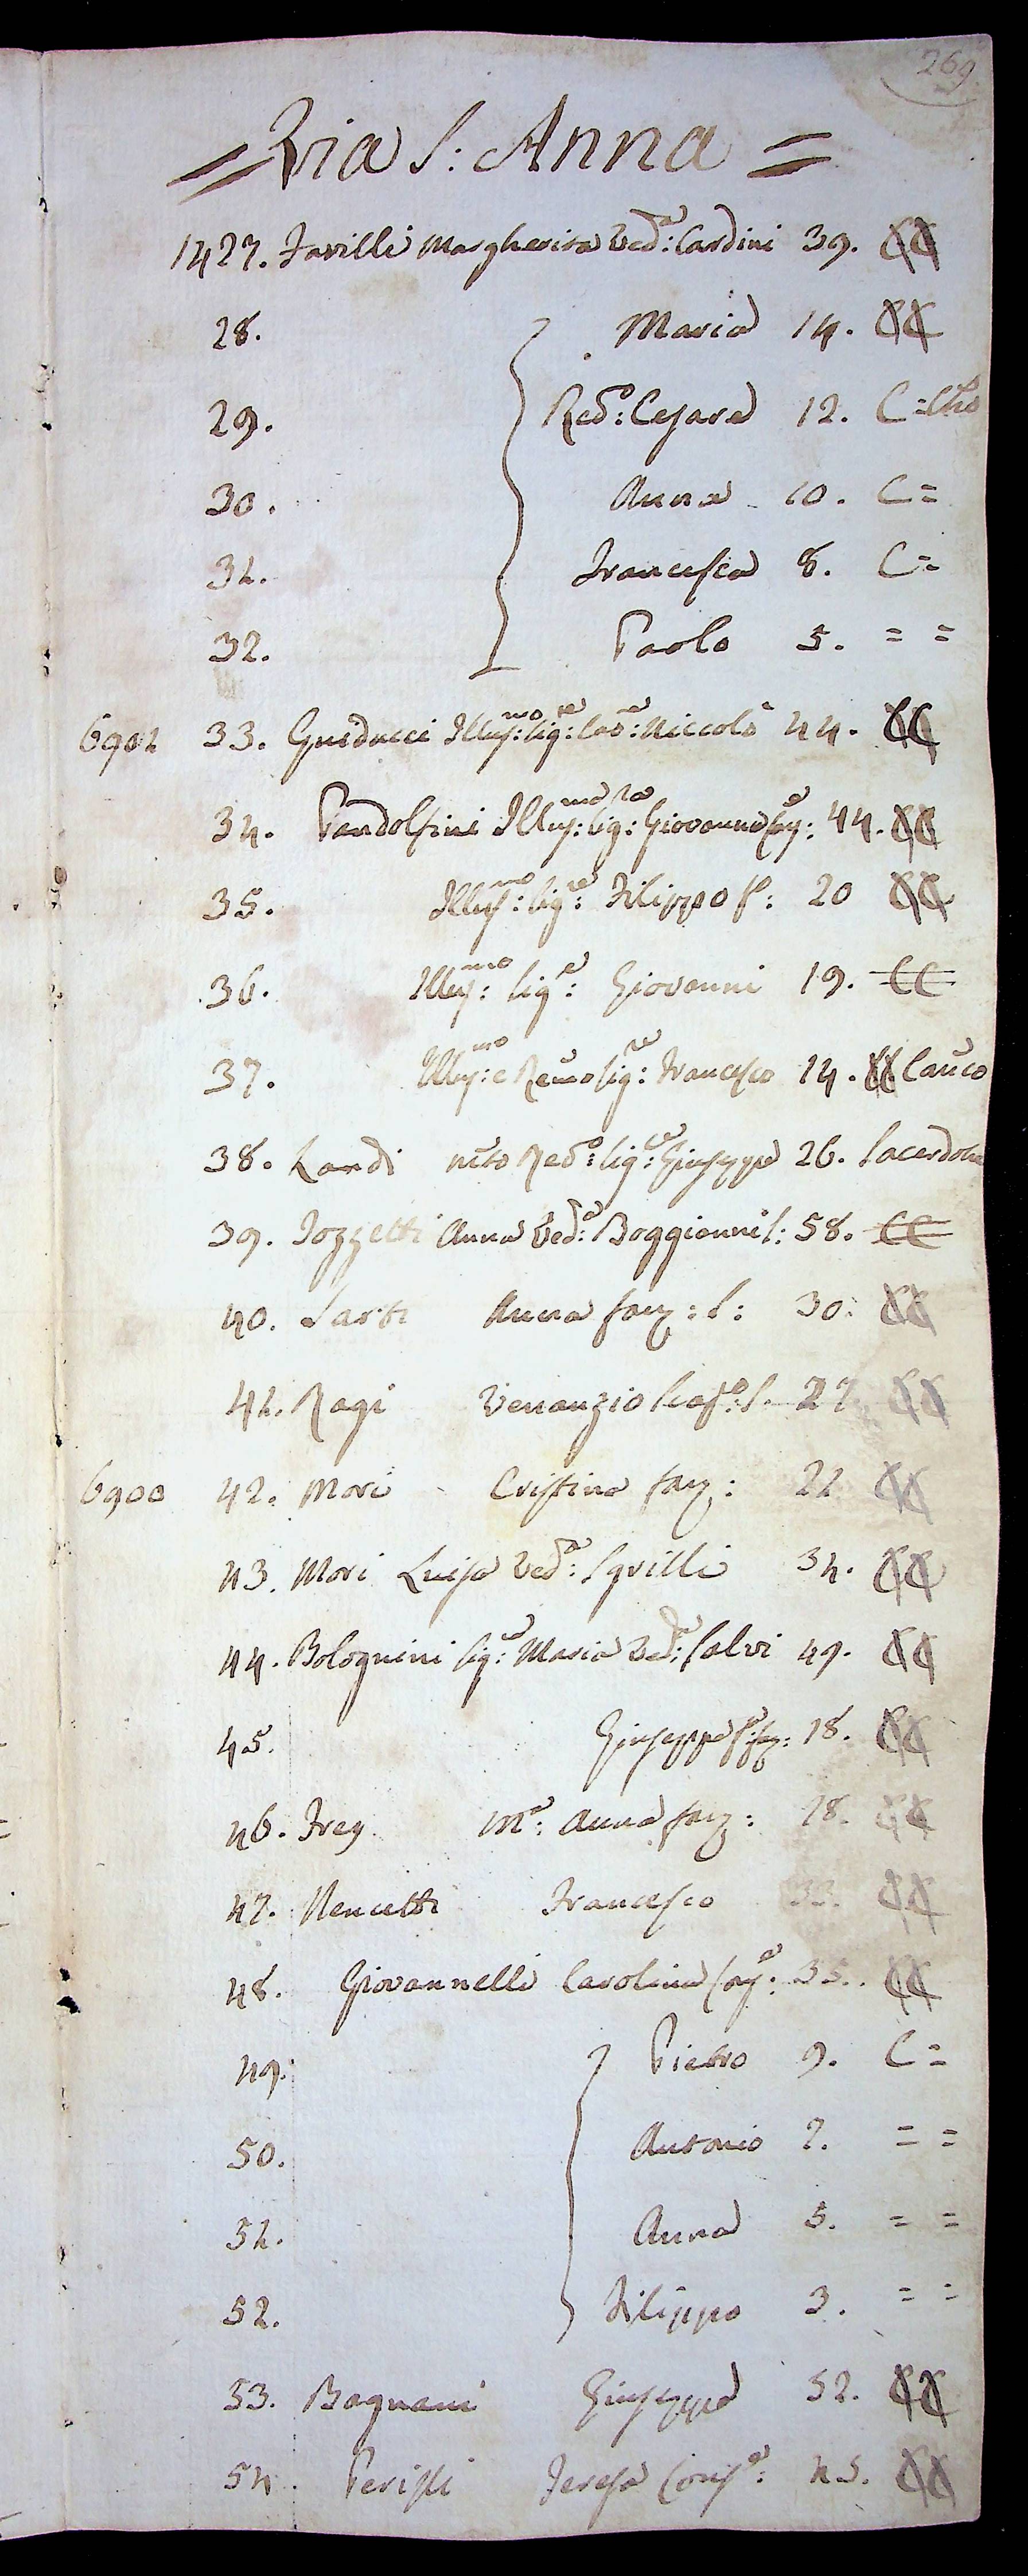 269
= Via S: Anna =
1427. Favilli Margherita Ved:a Cardini 39. CC
28. Maria 14. CC
29. Red:o Cesare 12. C=
30. Anna 10. C=
31. Francesca 8. C=
32. Paolo 5. = =
6901 33. Guiducci Illus:mo Sig:re Niccolò 44. CC
34. Pandolfini Illus:ma Sig:ra Giovanna 44. CC
35. Illus:mo Sig:re Filippo f: 20 CC
36. Illus:mo Sig:e Giovanni 19. CC
37. Illus:mo e Remo Sig:re Francesco 14. CC Cauco
38. Landi Red:o Sig:re Giuseppe 26. Sacerdote
39. Pozzetti Anna Ved:a Boggianni S: 58. CC
40. Sarti Anna fan: S: 30. CC
41. Ragi Venanzio S. 27 CC
6900 42. Mori Cristina fan: 22 CC
43. Mori Luisa Ved:a Sgrilli 34. CC
44. Bolognini Sig:a Maria Ved:a Salvi 49. CC
45. Giuseppe 18. CC
46. Frey M:a Anna fan: 18. CC
47. Nencetti Francesco 33. CC
48. Giovannelli Carolina 35. CC
49. Pietro 9. C=
50. Antonio 7. = =
51. Anna 5. = =
52. Filippo 3. = =
53. Bagnani Giuseppe 52. CC
54. Teresa Cons:e 45. CC